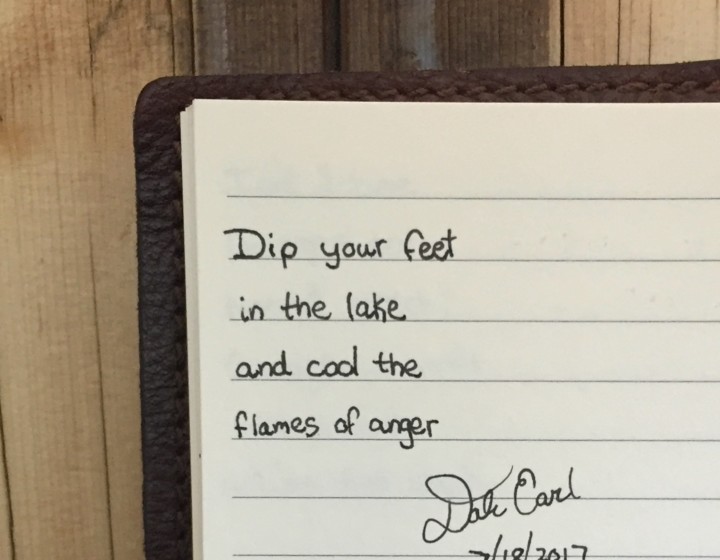 Dip your feet
in the lake
and cool the
flames of anger
Dale Carl
7/18/2017